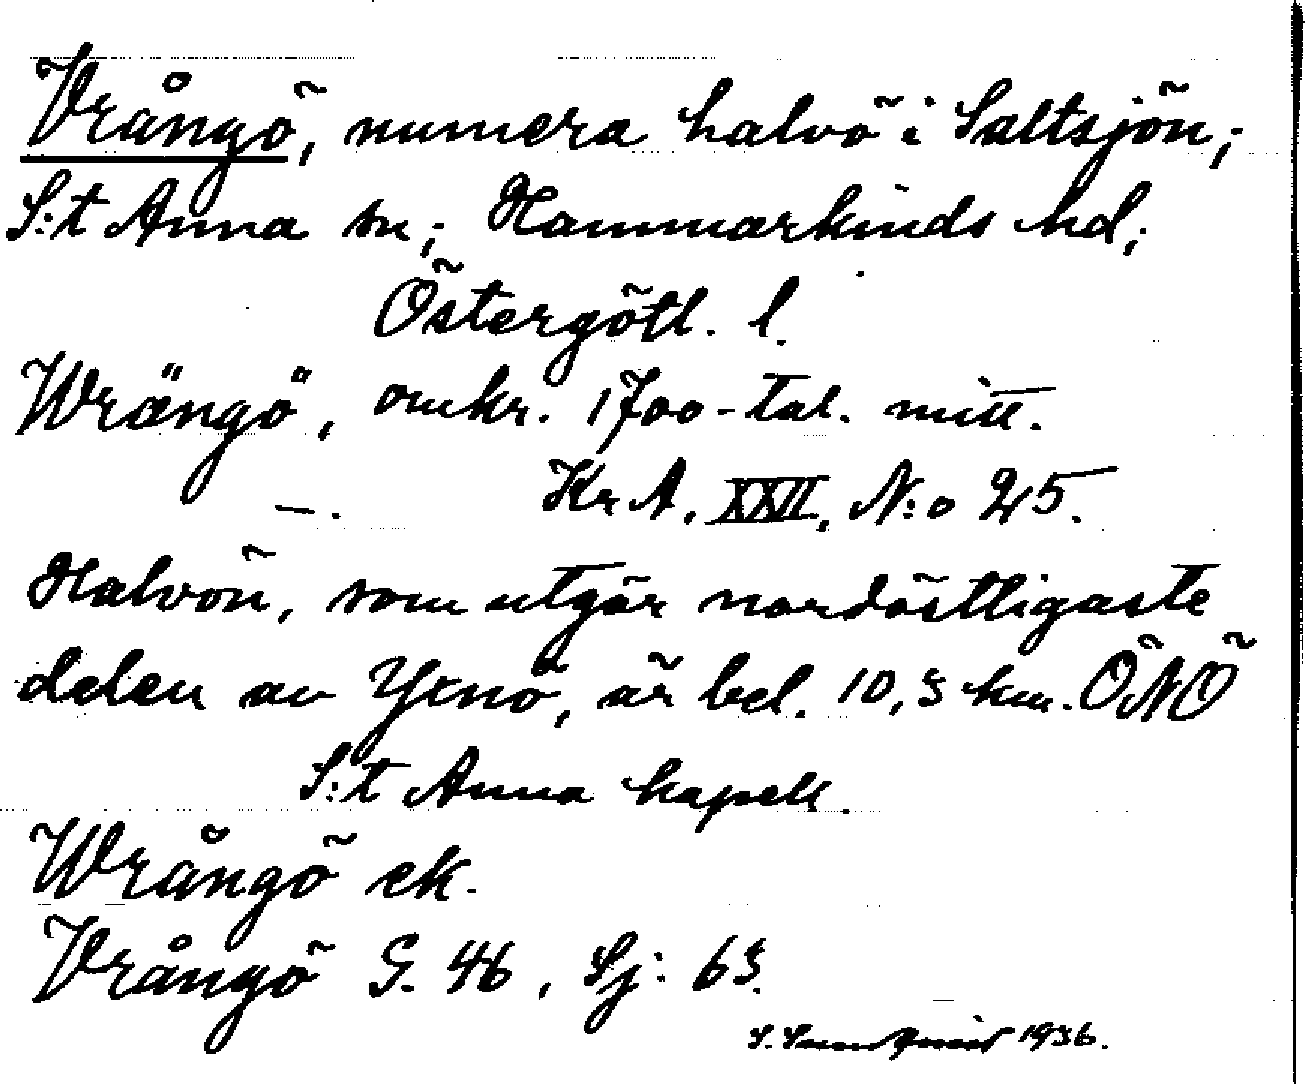 Vrångö, numera halvö i Saltsjön;
S:t Anna sn; Hammarkinds hd;
Östergötl. l.
Wrängö, omkr. 1700-tal. mitt.
—. KrA, XXII, N:o 25.
Halvön, som utgör nordöstligaste
delen av Yxnö, är bel. 10,5 km. ÖNÖ
S:t Anna kapell.
Wrångö ek.
Vrångö G. 46, Sj: 63.
S. Sundquist 1936.